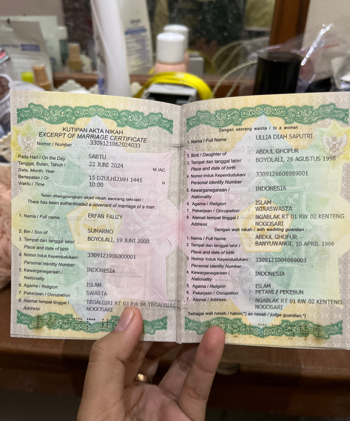 KUTIPAN AKTA NIKAH
EXCERPT OF MARRIAGE CERTIFICATE
Nomor / Number 3309121062024033
Pada Hari / On the Day SABTU
Tanggal, Bulan, Tahun / 22 JUNI 2024 M /AC
Date, Month, Year
Bertepatan / Or 15 DZULHIJJAH 1445 H
Waktu / Time 10:00
Telah dilangsungkan akad nikah seorang laki-laki :
There has been solemnized a covenant of marriage of a man:
1. Nama / Full Name ERFAN FAUZY
2. Bin / Son of SUMARNO
3. Tempat dan tanggal lahir BOYOLALI, 19 JUNI 2000
Place and date of birth
4. Nomor Induk Kependudukan/
Personal Identity Number
5. Kewarganegaraan / INDONESIA
Nationality
6. Agama / Religion ISLAM
7. Pekerjaan / Occupation SWASTA
8. Alamat tempat tinggal /
Address NOGOSARI
Dengan, seorang wanita / to a woman :
1. Nama / Full Name
2. Binti / Daughter of ABDUL GHOFUR
3. Tempat dan tanggal lahir BOYOLALI, 26 AGUSTUS 1998
Place and date of birth
4. Nomor Induk Kependudukan/
Personal Identity Number
5. Kewarganegaraan / INDONESIA
Nationality
6. Agama / Religion ISLAM
7. Pekerjaan / Occupation WIRASWASTA
8. Alamat tempat tinggal / NGABLAK RT 01 RW 02 KENTENG
Address NOGOSARI
Dengan wali nikah / with wedding guardian :
1. Nama / Full Name ABDUL GHOFUR
2. Tempat dan tanggal lahir / BANYUWANGI, 10 APRIL 1966
Place and date of birth
3. Nomor Induk Kependudukan/
Personal Identity Number
4. Kewarganegaraan / INDONESIA
Nationality
5. Agama / Religion ISLAM
6. Pekerjaan / Occupation PETANI / PEKEBUN
7. Alamat tempat tinggal / NGABLAK RT 01 RW 02 KENTENG
Address NOGOSARI
Sebagai wali nasab / hakim*)